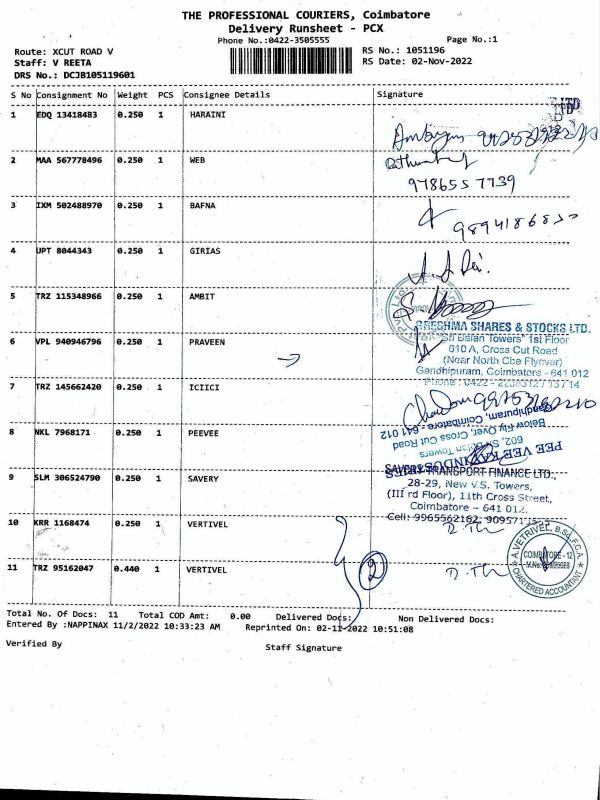 THE PROFESSIONAL COURIERS, Coimbatore
Delivery Runsheet - PCX
Phone No.:0422-3505555
Page No.:1
Route: XCUT ROAD V
RS No.: 1051196
Staff: V REETA
RS Date: 02-Nov-2022
DRS No.: DCJB105119601
S No Consignment No Weight PCS Consignee Details Signature
1 EDQ 13418483 0.250 1 HARAINI
2 MAA 567778496 0.250 1 WEB
9786557739
3 IXM 502488970 0.250 1 BAFNA
4 UPT 8044343 0.250 1 GIRIAS
5 TRZ 115348966 0.250 1 AMBIT
GRESHMA SHARES & STOCKS LTD.
"Sri Balan Towers" 1st Floor
6 VPL 940946796 0.250 1 PRAVEEN
610 A, Cross Cut Road
(Near North Cbe Flyover)
Gandhipuram, Coimbatore - 641 012
7 TRZ 145662420 0.250 1 ICIICI
Gandhipuram, Coimbatore - 641 012
Below Fly Over, Cross Cut Road
8 NKL 7968171 0.250 1 PEEVEE
9 SLM 306524790 0.250 1 SAVERY
TRANSPORT FINANCE LTD.,
28-29, New V.S. Towers,
(III rd Floor), 11th Cross Street,
Coimbatore - 641 012.
10 KRR 1168474 0.250 1 VERTIVEL
Cell: 9965562162,
A.VETRIVEL, B.Sc,F.C.A.
COIMBATORE - 12
CHARTERED ACCOUNTANT
11 TRZ 95162047 0.440 1 VERTIVEL
2
Total No. Of Docs: 11 Total COD Amt: 0.00 Delivered Docs: Non Delivered Docs:
Entered By :NAPPINAX 11/2/2022 10:33:23 AM Reprinted On: 02-11-2022 10:51:08
Verified By
Staff Signature